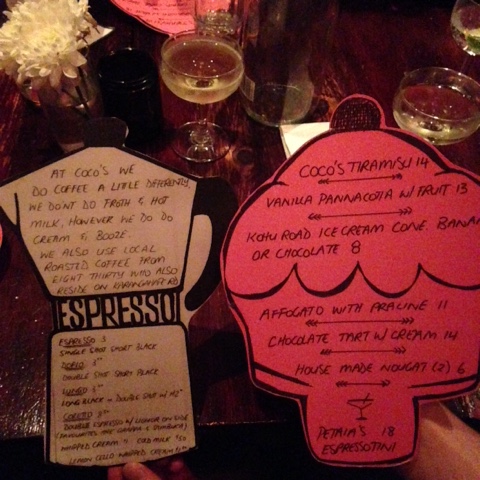 AT COCO'S WE
DO COFFEE A LITTLE DIFFERENTLY.
WE DON'T DO FROTH & HOT
MILK, HOWEVER WE DO DO
CREAM & BOOZE.
WE ALSO USE LOCAL
ROASTED COFFEE FROM
EIGHT THIRTY WHO ALSO
RESIDE ON KARANGAHAPE RD
ESPRESSO
ESPRESSO 3
SINGLE SHOT SHORT BLACK
DOPIO 3
DOUBLE SHOT SHORT BLACK
LUNGO 3
LONG BLACK
CORETO
DOUBLE ESPRESSO W/ LIQUOR ON SIDE
WHIPPED CREAM COLD MILK
LEMON CELLO WHIPPED CREAM
COCO'S TIRAMISU 14
VANILLA PANNACOTTA W/ FRUIT 13
KOHU ROAD ICE CREAM CONE. BANAN
OR CHOCOLATE 8
AFFOGATO WITH PRALINE 11
CHOCOLATE TART W/ CREAM 14
HOUSE MADE NOUGAT (2) 6
PETAIA'S 18
ESPRESSOTINI